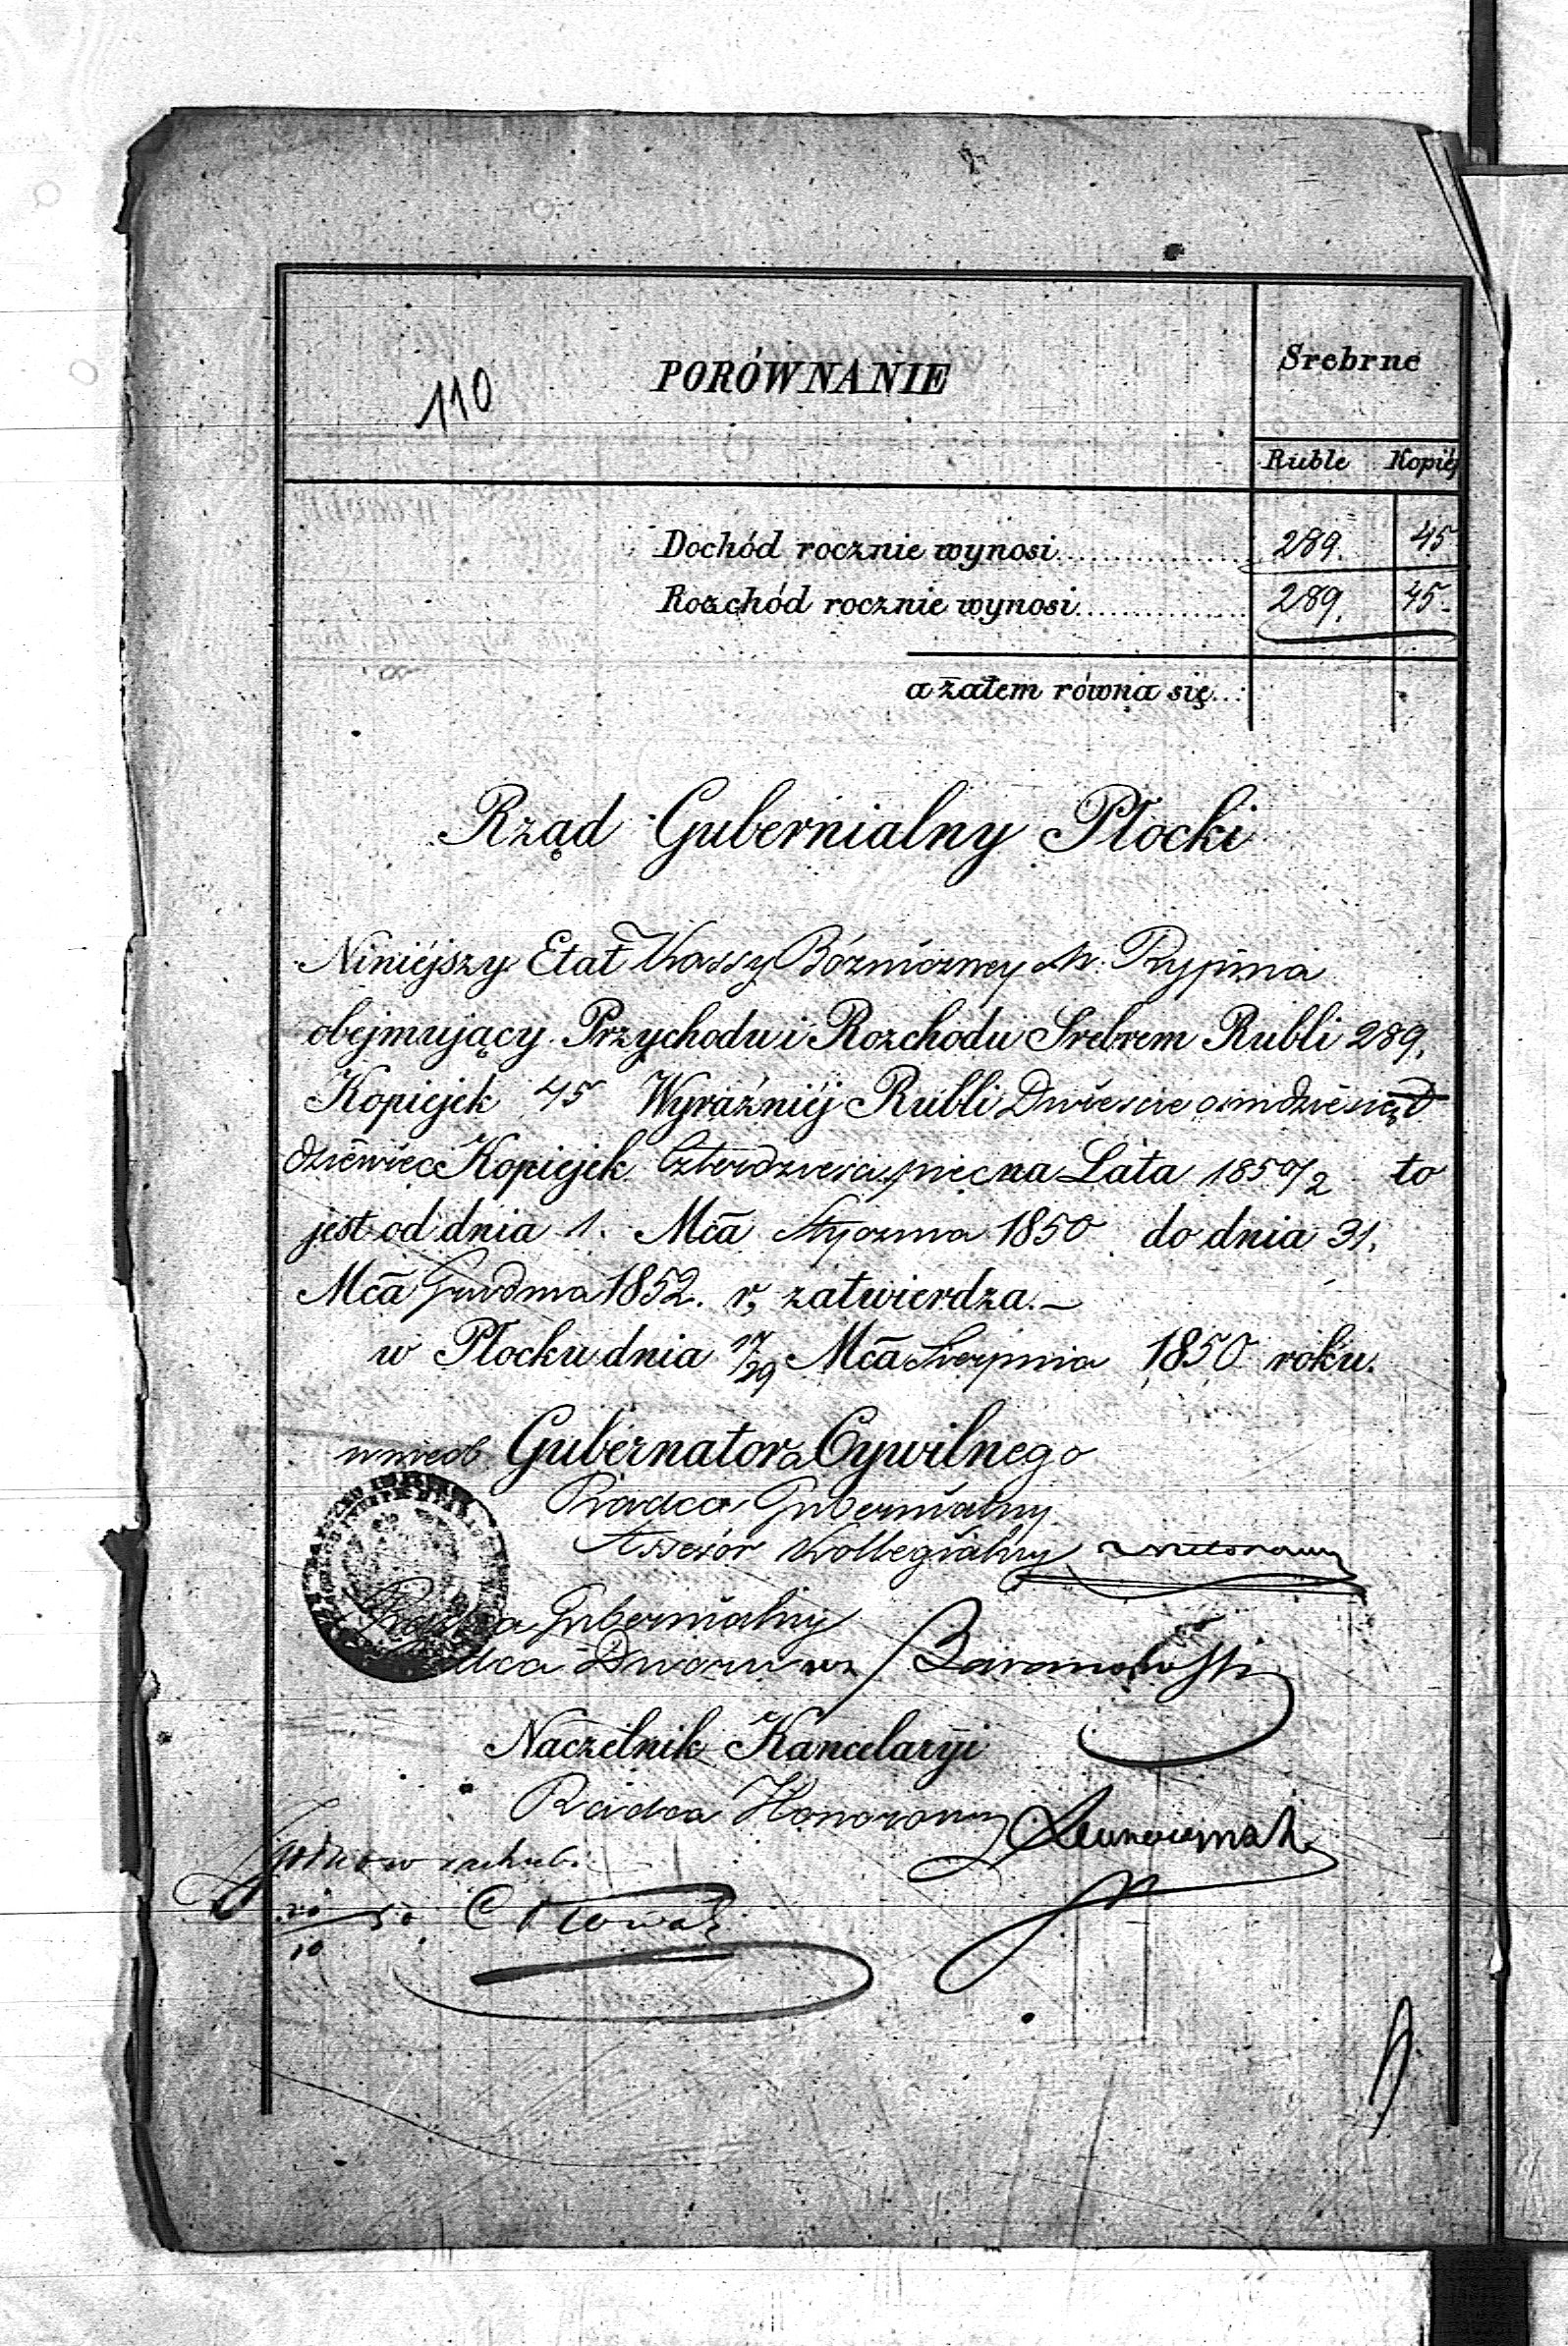 110
PORÓWNANIE
Srebrne
Ruble Kopiéj
Dochód rocznie wynosi 289. 45
Rozchód rocznie wynosi 289. 45.
a zatem równa się
Rząd Gubernialny Płocki
Niniéjszy Etat Kassy Bóźniczney M. Rypina
obejmujący Przychodu i Rozchodu Srebrem Rubli 289.
Kopiejek 45 Wyraźniéj Rubli Dwieście ośmdziesiąt
dziewięć Kopiejek Czterdzieści pięć na Lata 1850/2 to
jest od dnia 1. Mca Stycznia 1850 do dnia 31.
Mca Grudnia 1852. r. zatwierdza.—
w Płocku dnia 17/29 Mca Sierpnia 1850 roku.
Gubernatora Cywilnego
Radca Gubernialny
Assesór Kollegialny
Radca Gubernialny
Radca Dworu Baranowski
Naczelnik Kancelaryi
Radca Honorowy